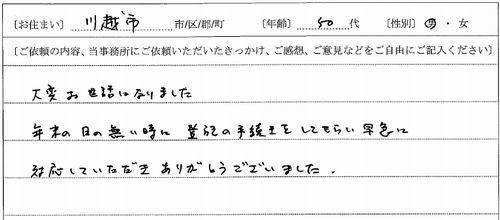 〔お住まい〕 川越市 市/区/郡/町 〔年齢〕 50 代 〔性別〕 男・女
〔ご依頼の内容、当事務所にご依頼いただいたきっかけ、ご感想、ご意見などをご自由にご記入ください〕
大変お世話になりました
年末の日の無い時に 登記の手続きをしてもらい 早急に
対応していただき ありがとうございました.